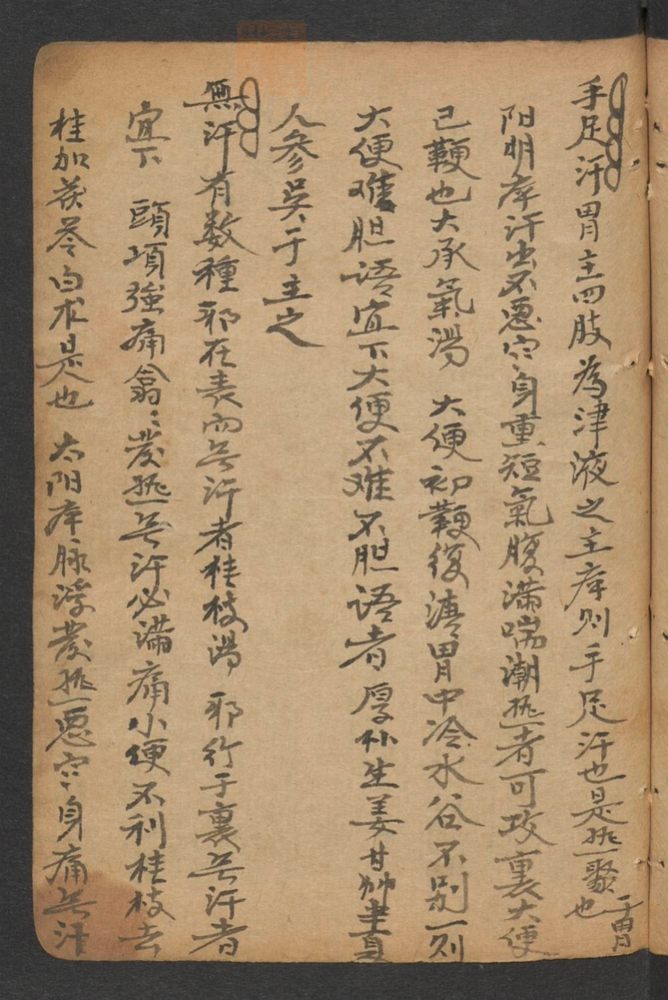 手足汗胃主四肢為津液之主疾则手足汗也是热聚于胃也
阳明疾汗出不恶穴身重短氣腹满喘潮热者可攻裏大便
已鞕也大承氣湯 大便初鞕後溏胃中冷水谷不别一则
大便难胆语宜下大便不难不胆语者厚朴生姜甘艸半夏
人参吴于主之
無汗有数種邪在表而旡汗者桂枝湯 邪行于裏旡汗者
宜下 頭項强痛翕〻發热旡汗必满痛小便不利桂枝去
桂加茯苓白术是也 太阳疾脉浮發热恶穴身痛旡汗